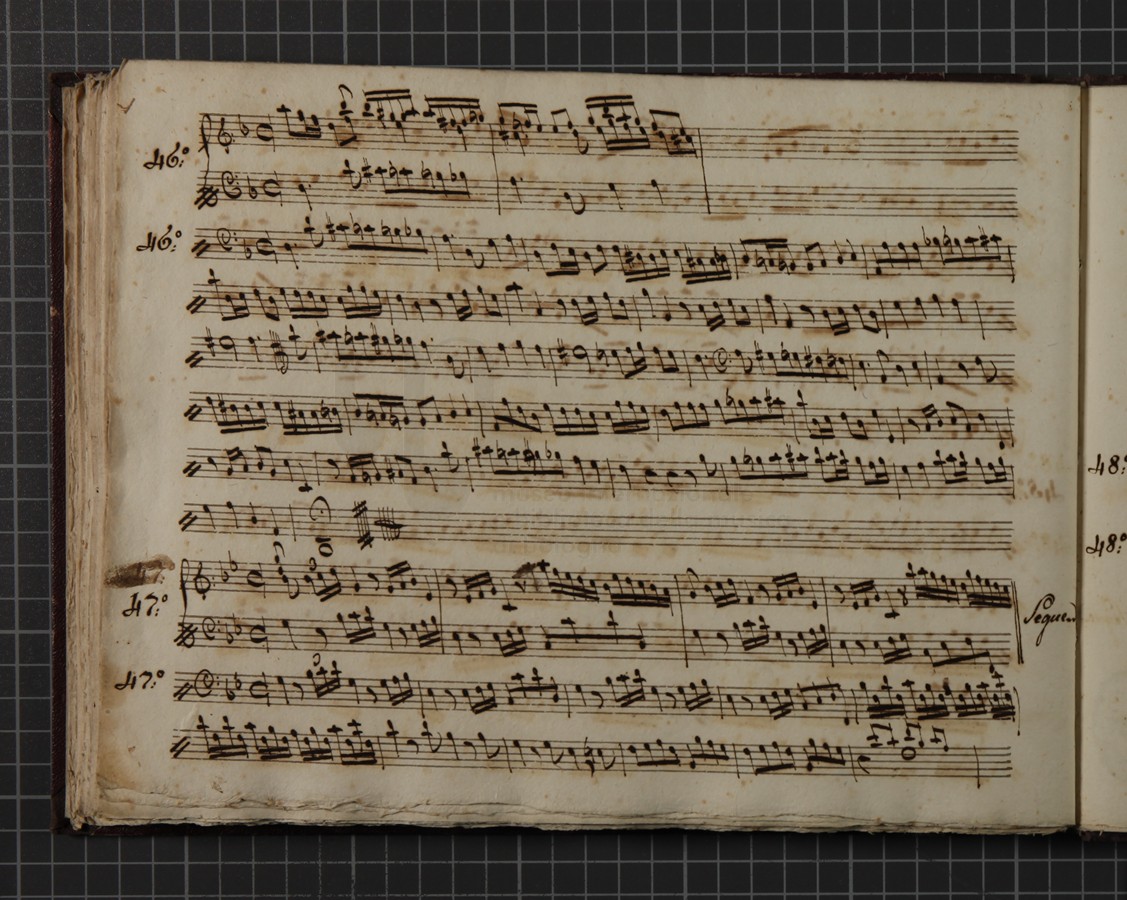 46:º
46:º
48:º
48:º
47:º
Segue
47:º